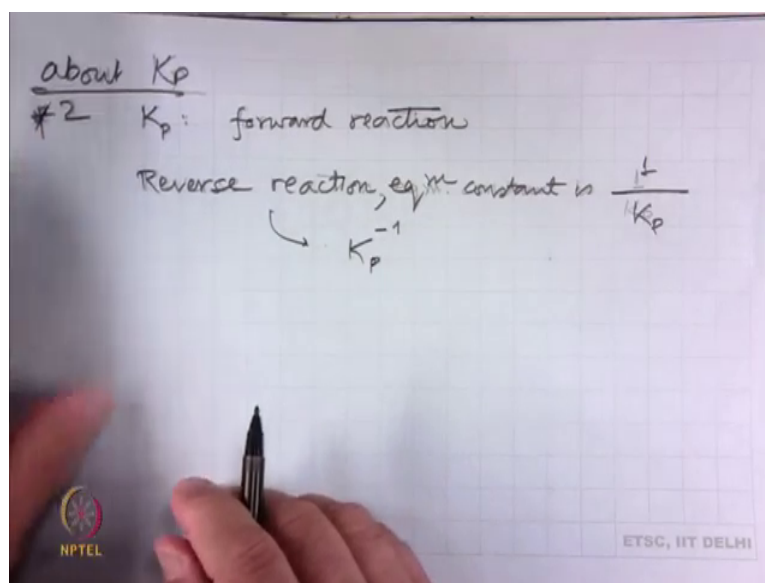 about Kp
#2 Kp: forward reaction
Reverse reaction, eqm. constant is 1/Kp
Kp^-1
NPTEL
ETSC, IIT DELHI